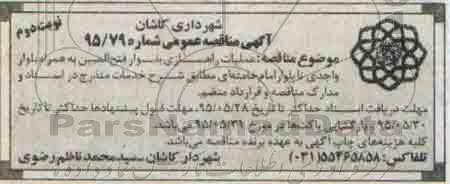 شهرداری کاشان
نوبت دوم
آگهی مناقصه عمومی شماره ۹۵/۷۹
موضوع مناقصه: عملیات راهسازی بلوار فتح‌المبین به همراه بلوار
واحدی تا بلوار امام خامنه‌ای مطابق شرح خدمات مندرج در اسناد و
مدارک مناقصه و قرارداد منضم.
مهلت دریافت اسناد حداکثر تا تاریخ ۹۵/۰۵/۲۸، مهلت قبول پیشنهادها حداکثر تا تاریخ
۹۵/۰۵/۳۰ و بازگشایی پاکت‌ها در مورخ ۹۵/۰۵/۳۱ می‌باشد.
کلیه هزینه‌های چاپ آگهی به عهده برنده مناقصه می‌باشد.
تلفاکس: ۵۵۴۶۵۸۵۸ (۰۳۱) شهردار کاشان ـ سید محمد ناظم رضوی